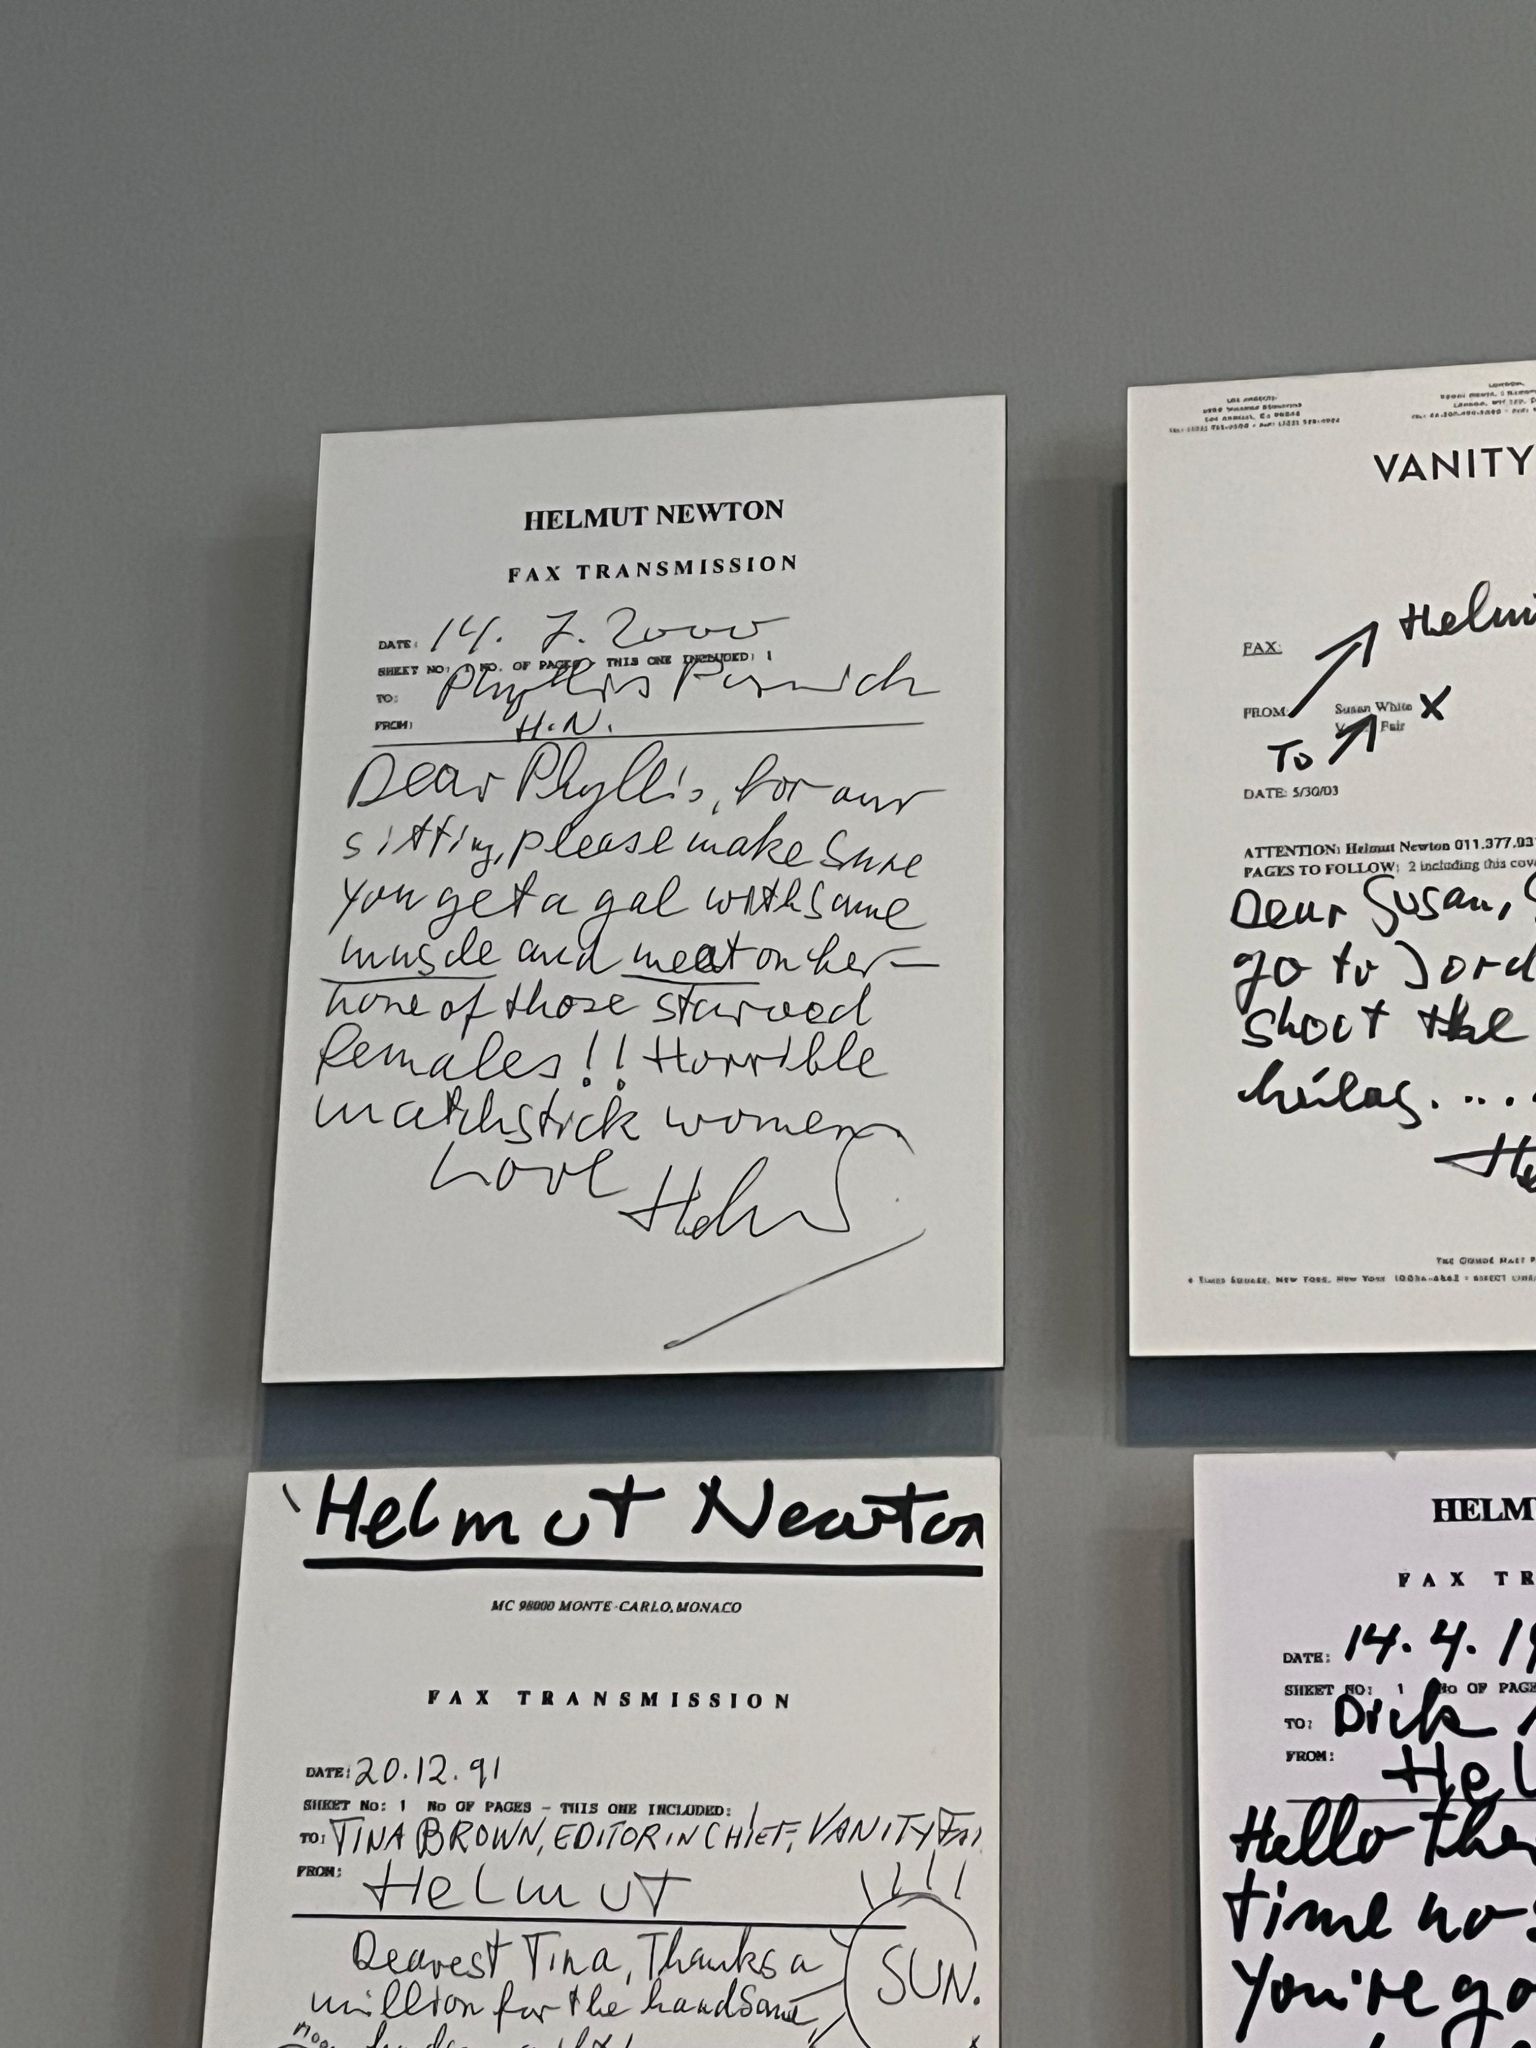 HELMUT NEWTON
FAX TRANSMISSION
DATE: 14. 7. 2000
SHEET NO: 1 NO. OF PAGES - THIS ONE INCLUDED: 1
TO: Phyllis
FROM: H.N.
Dear Phyllis, for our
sitting, please make sure
you get a gal with some
muscle and meat on her —
none of those starved
females!! Horrible
matchstick women
Love Helmut
LOS ANGELES
LONDON
VANITY
FAX:
FROM: Susan White X
Fair
To
DATE: 5/30/03
ATTENTION: Helmut Newton 011.377.93
PAGES TO FOLLOW: 2 including this cov
Dear Susan,
go to Jord
shoot the
hélas.....
TIMES SQUARE, NEW YORK, NEW YORK
Helmut Newton
MC 98000 MONTE-CARLO, MONACO
FAX TRANSMISSION
DATE: 20.12.91
SHEET No: 1 No OF PAGES - THIS ONE INCLUDED: 1
TO: TINA BROWN, EDITOR IN CHIEF, VANITY FAI
FROM: HELMUT
Dearest Tina, Thanks a
million for the handsome
SUN.
HELM
FAX TR
DATE: 14. 4. 19
SHEET NO: 1 No OF PAGE
TO: Dick
FROM: Hel
Hello the
time no s
You're go